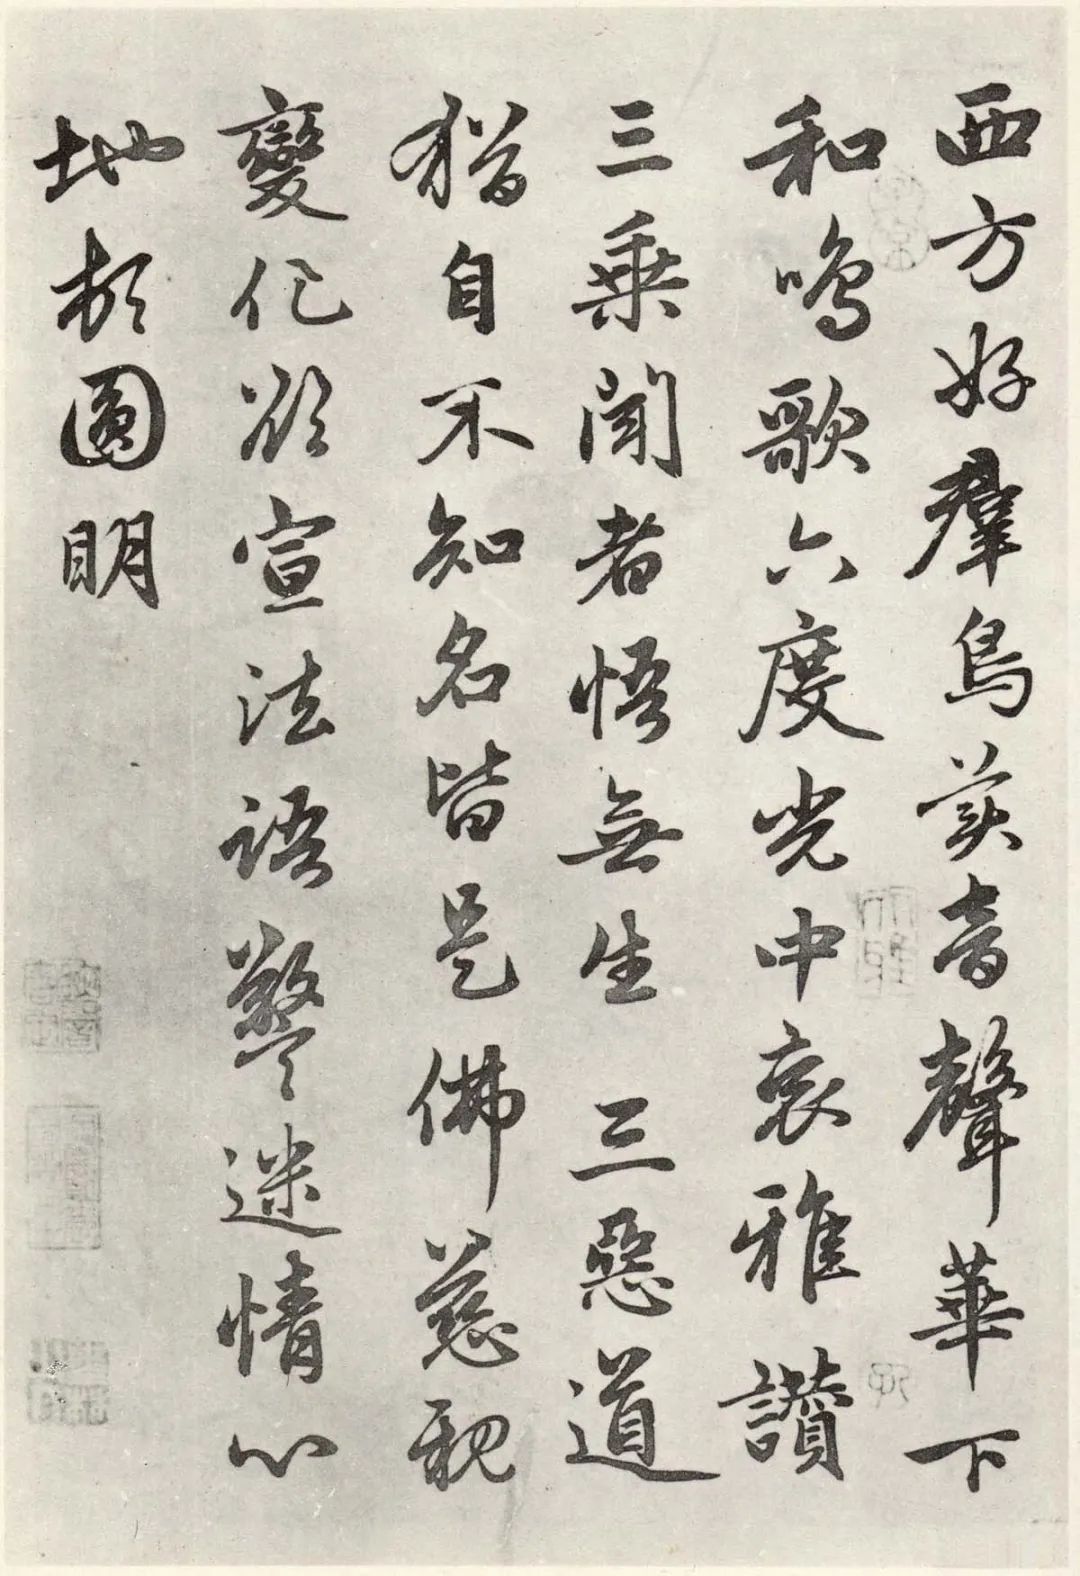 西方好羣鳥美音聲華下
和鳴歌六度光中哀雅讚
三乗聞者悟無生三惡道
猶自不知名皆是佛慈親
變化欲宣法語警迷情心
地頓圓明